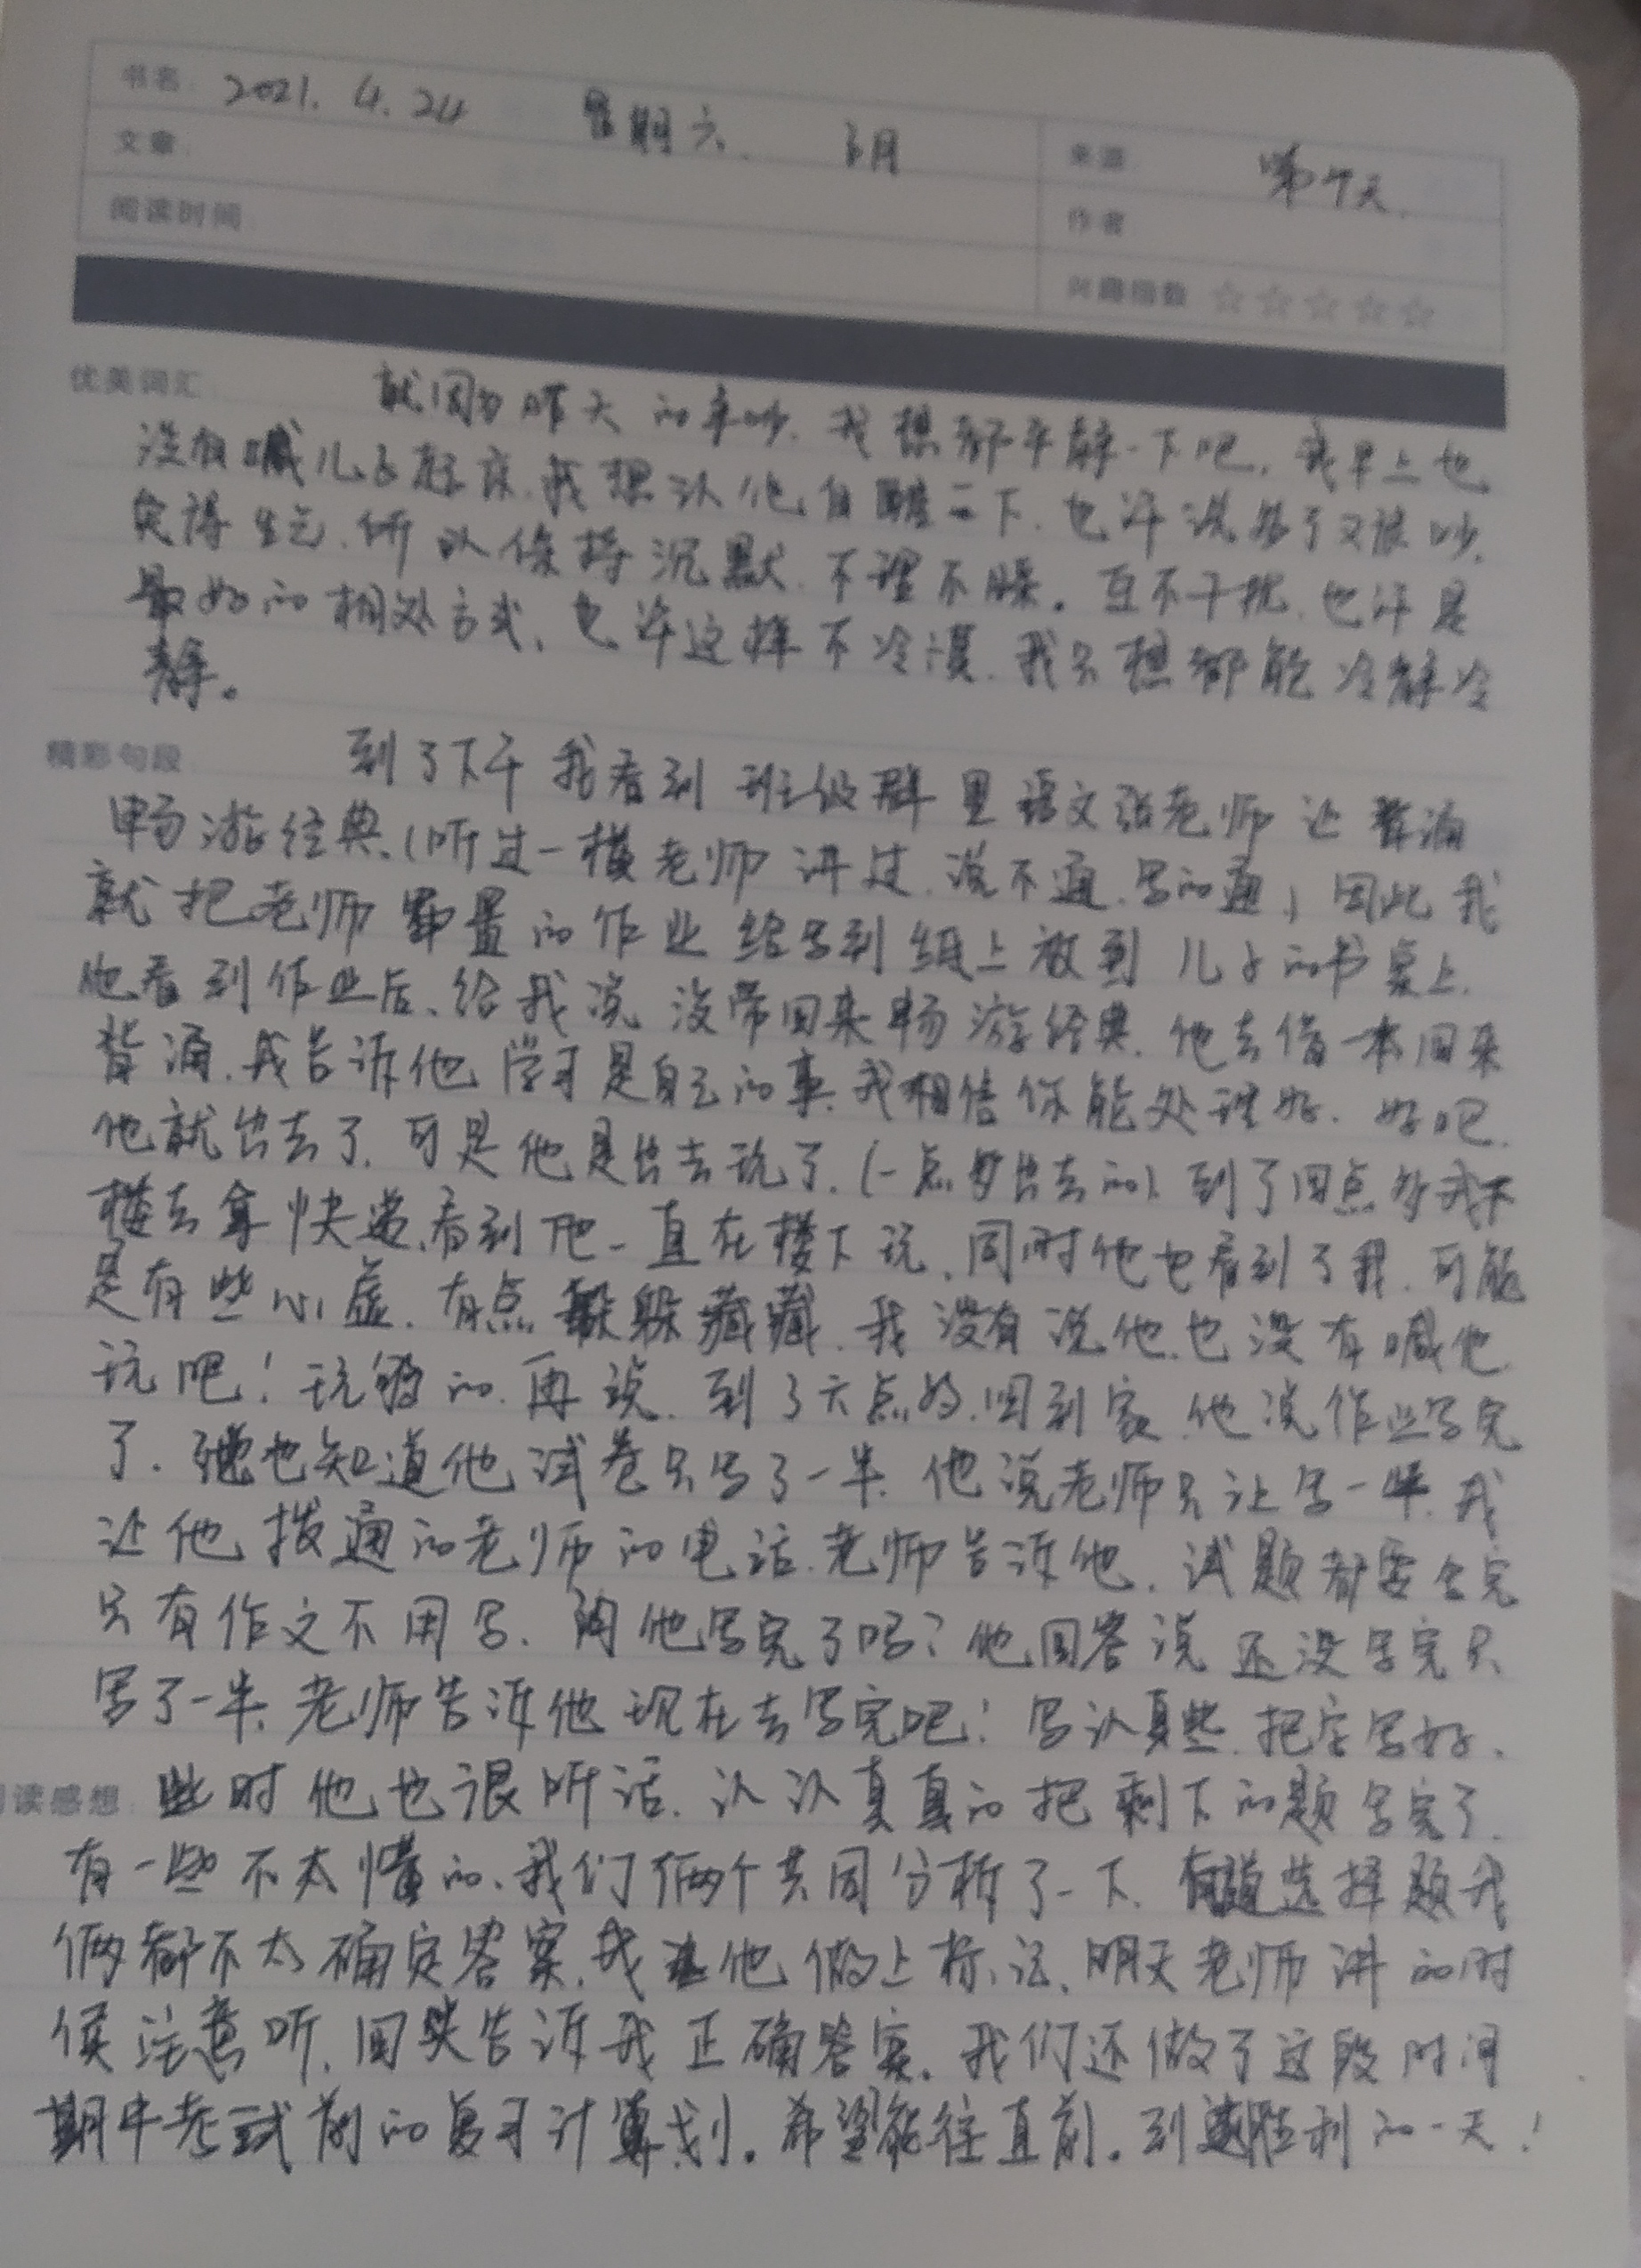 书名: 2021. 4. 24 星期六. 月 来源: 第 天.
文章: 作者
阅读时间: 兴趣指数 ☆☆☆☆☆
优美词汇: 就因为昨天的争吵. 我想都平静一下吧. 我早上也
没有喊儿子起床. 我想让他自醒一下. 也许说多了又很吵.
实得生气. 所以保持沉默. 不理不睬. 互不干扰. 也许是
最好的相处方式. 也许这样不冷漠. 我只想都能冷静冷
静。
精彩句段: 到了下午我看到班级群里语文张老师让背诵
畅游经典. (听过一楼老师讲过. 说不通. 写的通) 因此我
就把老师布置的作业给写到纸上放到儿子的书桌上.
他看到作业后、给我说没带回来畅游经典. 他去借一本回来
背诵. 我告诉他学习是自己的事. 我相信你能处理好. 好吧.
他就出去了. 可是他是出去玩了. (一点多出去的). 到了四点多我下
楼去拿快递、看到他一直在楼下玩、同时他也看到了我. 可能
是有些心虚. 有点躲躲藏藏. 我没有说他. 也没有喊他.
玩吧! 玩够的. 再说. 到了六点多. 回到家. 他说作业写完
了. 也知道他试卷只写了一半. 他说老师只让写一半. 我
让他拨通的老师的电话. 老师告诉他. 试题都要写完
只有作文不用写. 问他写完了吗? 他回答说还没写完只
写了一半. 老师告诉他现在去写完吧! 写认真些. 把字写好.
阅读感想: 此时他也很听话. 认认真真的把剩下的题写完了.
有一些不太懂的、我们俩个共同分析了一下. 有道选择题我
俩都不太确定答案. 我让他做上标记、明天老师讲的时
候注意听. 回来告诉我正确答案. 我们还做了这段时间
期中考试前的复习计划。希望能往直前。到达胜利的一天!